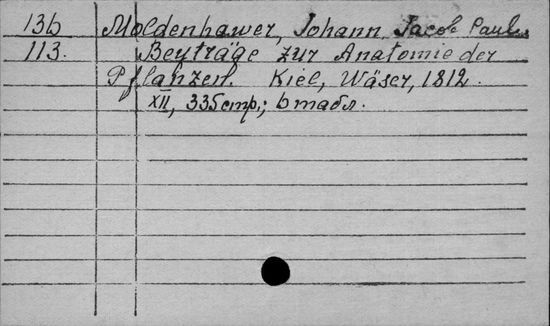 136 Moldenhawer, Johann Jacob Paul.
113. Beyträge zur Anatomie der
Pflanzen. Kiel, Wäser, 1812.
XII, 335 стр.; 6 табл.